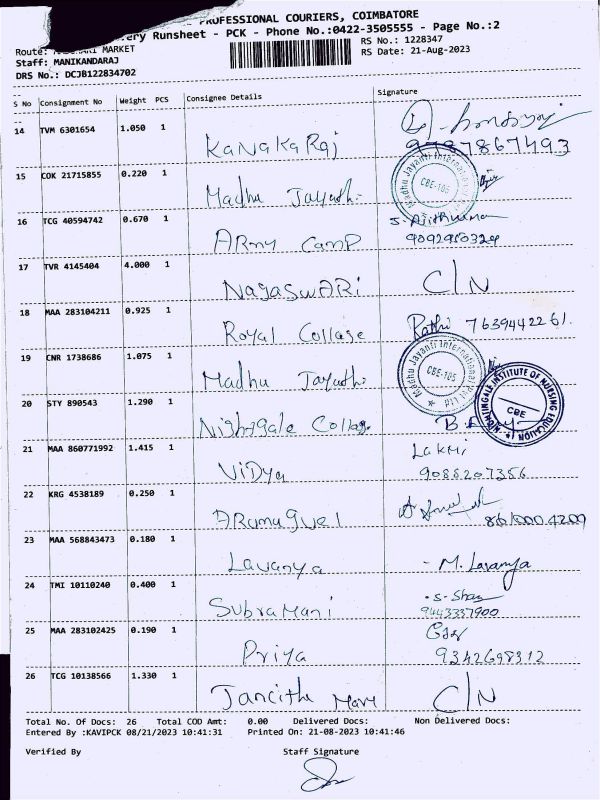 PROFESSIONAL COURIERS, COIMBATORE
Runsheet - PCK - Phone No.:0422-3505555 - Page No.:2
Route: MARKET
RS No.: 1228347
Staff: MANIKANDARAJ
RS Date: 21-Aug-2023
DRS No.: DCJB122834702
S No Consignment No Weight PCS Consignee Details Signature
14 TVM 6301654 1.050 1 KaNaKaRaj
15 COK 21715855 0.220 1 Madhu Jayathi Madhu Jayanti International CBE-105
16 TCG 40594742 0.670 1 ARmy Camp
17 TVR 4145404 4.000 1 NagaSwARi C/N
18 MAA 283104211 0.925 1 Royal Collage Rathi 7639442261.
19 CNR 1738686 1.075 1 Madhu Jayathi Madhu Jayanti International CBE-105
20 STY 890543 1.290 1 Nightigale Collage NIGHTINGALE INSTITUTE OF NURSING EDUCATION CBE
21 MAA 860771992 1.415 1 ViDya Lakmi 9086207356
22 KRG 4538189 0.250 1 ARumuguel
23 MAA 568843473 0.180 1 Lavanya - M. Lavanya
24 TMI 10110240 0.400 1 SubraMani 9443337900
25 MAA 283102425 0.190 1 Priya 9342698312
26 TCG 10138566 1.330 1 Jancitha Mary C/N
Total No. Of Docs: 26 Total COD Amt: 0.00 Delivered Docs: Non Delivered Docs:
Entered By :KAVIPCK 08/21/2023 10:41:31 Printed On: 21-08-2023 10:41:46
Verified By Staff Signature